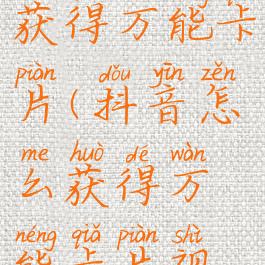 获得万能卡
piàn dǒu yīn zěn
片(抖音怎
me huò dé wàn
么获得万
néng qiǎ piàn shì
能卡片视